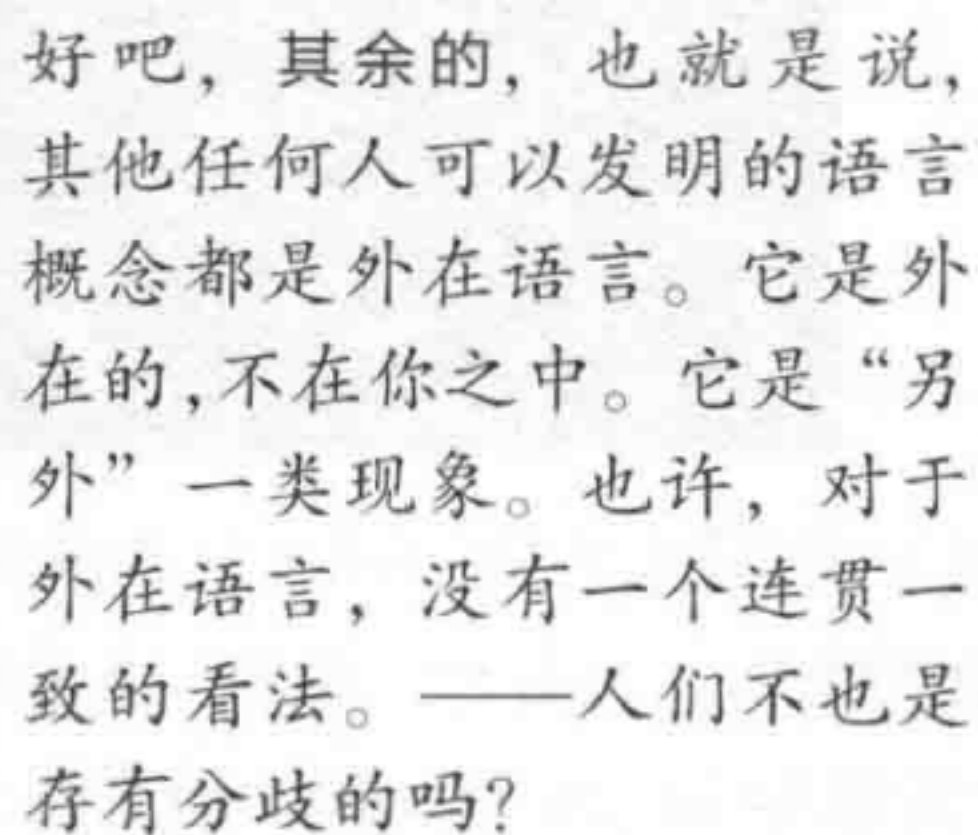 好吧，其余的，也就是说，
其他任何人可以发明的语言
概念都是外在语言。它是外
在的，不在你之中。它是“另
外”一类现象。也许，对于
外在语言，没有一个连贯一
致的看法。——人们不也是
存有分歧的吗？